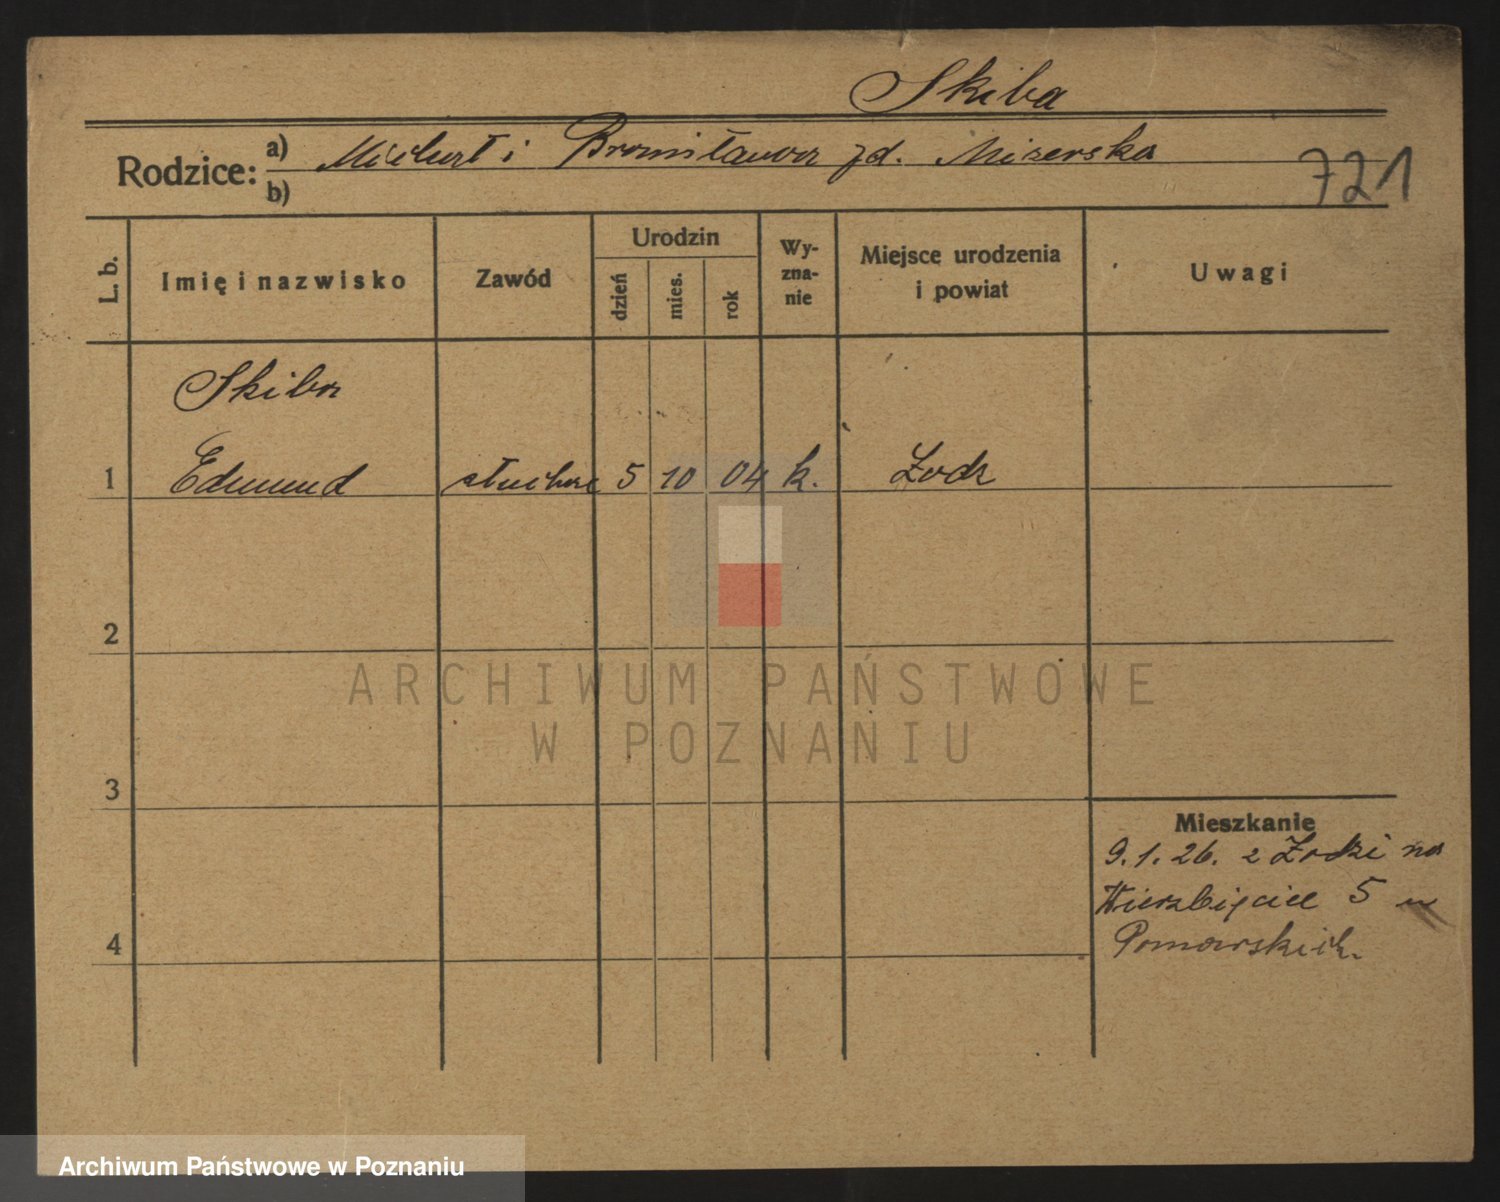 Skiba
Rodzice: a) Michał i Bronisława zd. Mizerska
b)
721
L. b.
Imię i nazwisko
Zawód
Urodzin
dzień
mies.
rok
Wy-
zna-
nie
Miejsce urodzenia
i powiat
Uwagi
Skiba
1 Edmund słuchacz 5 10 04 k. Łodz
2
3
4
Mieszkanie
9.1.26. z Łodzi na
Wierzbięcice 5 u
Pomorskich.
ARCHIWUM PAŃSTWOWE
W POZNANIU
Archiwum Państwowe w Poznaniu